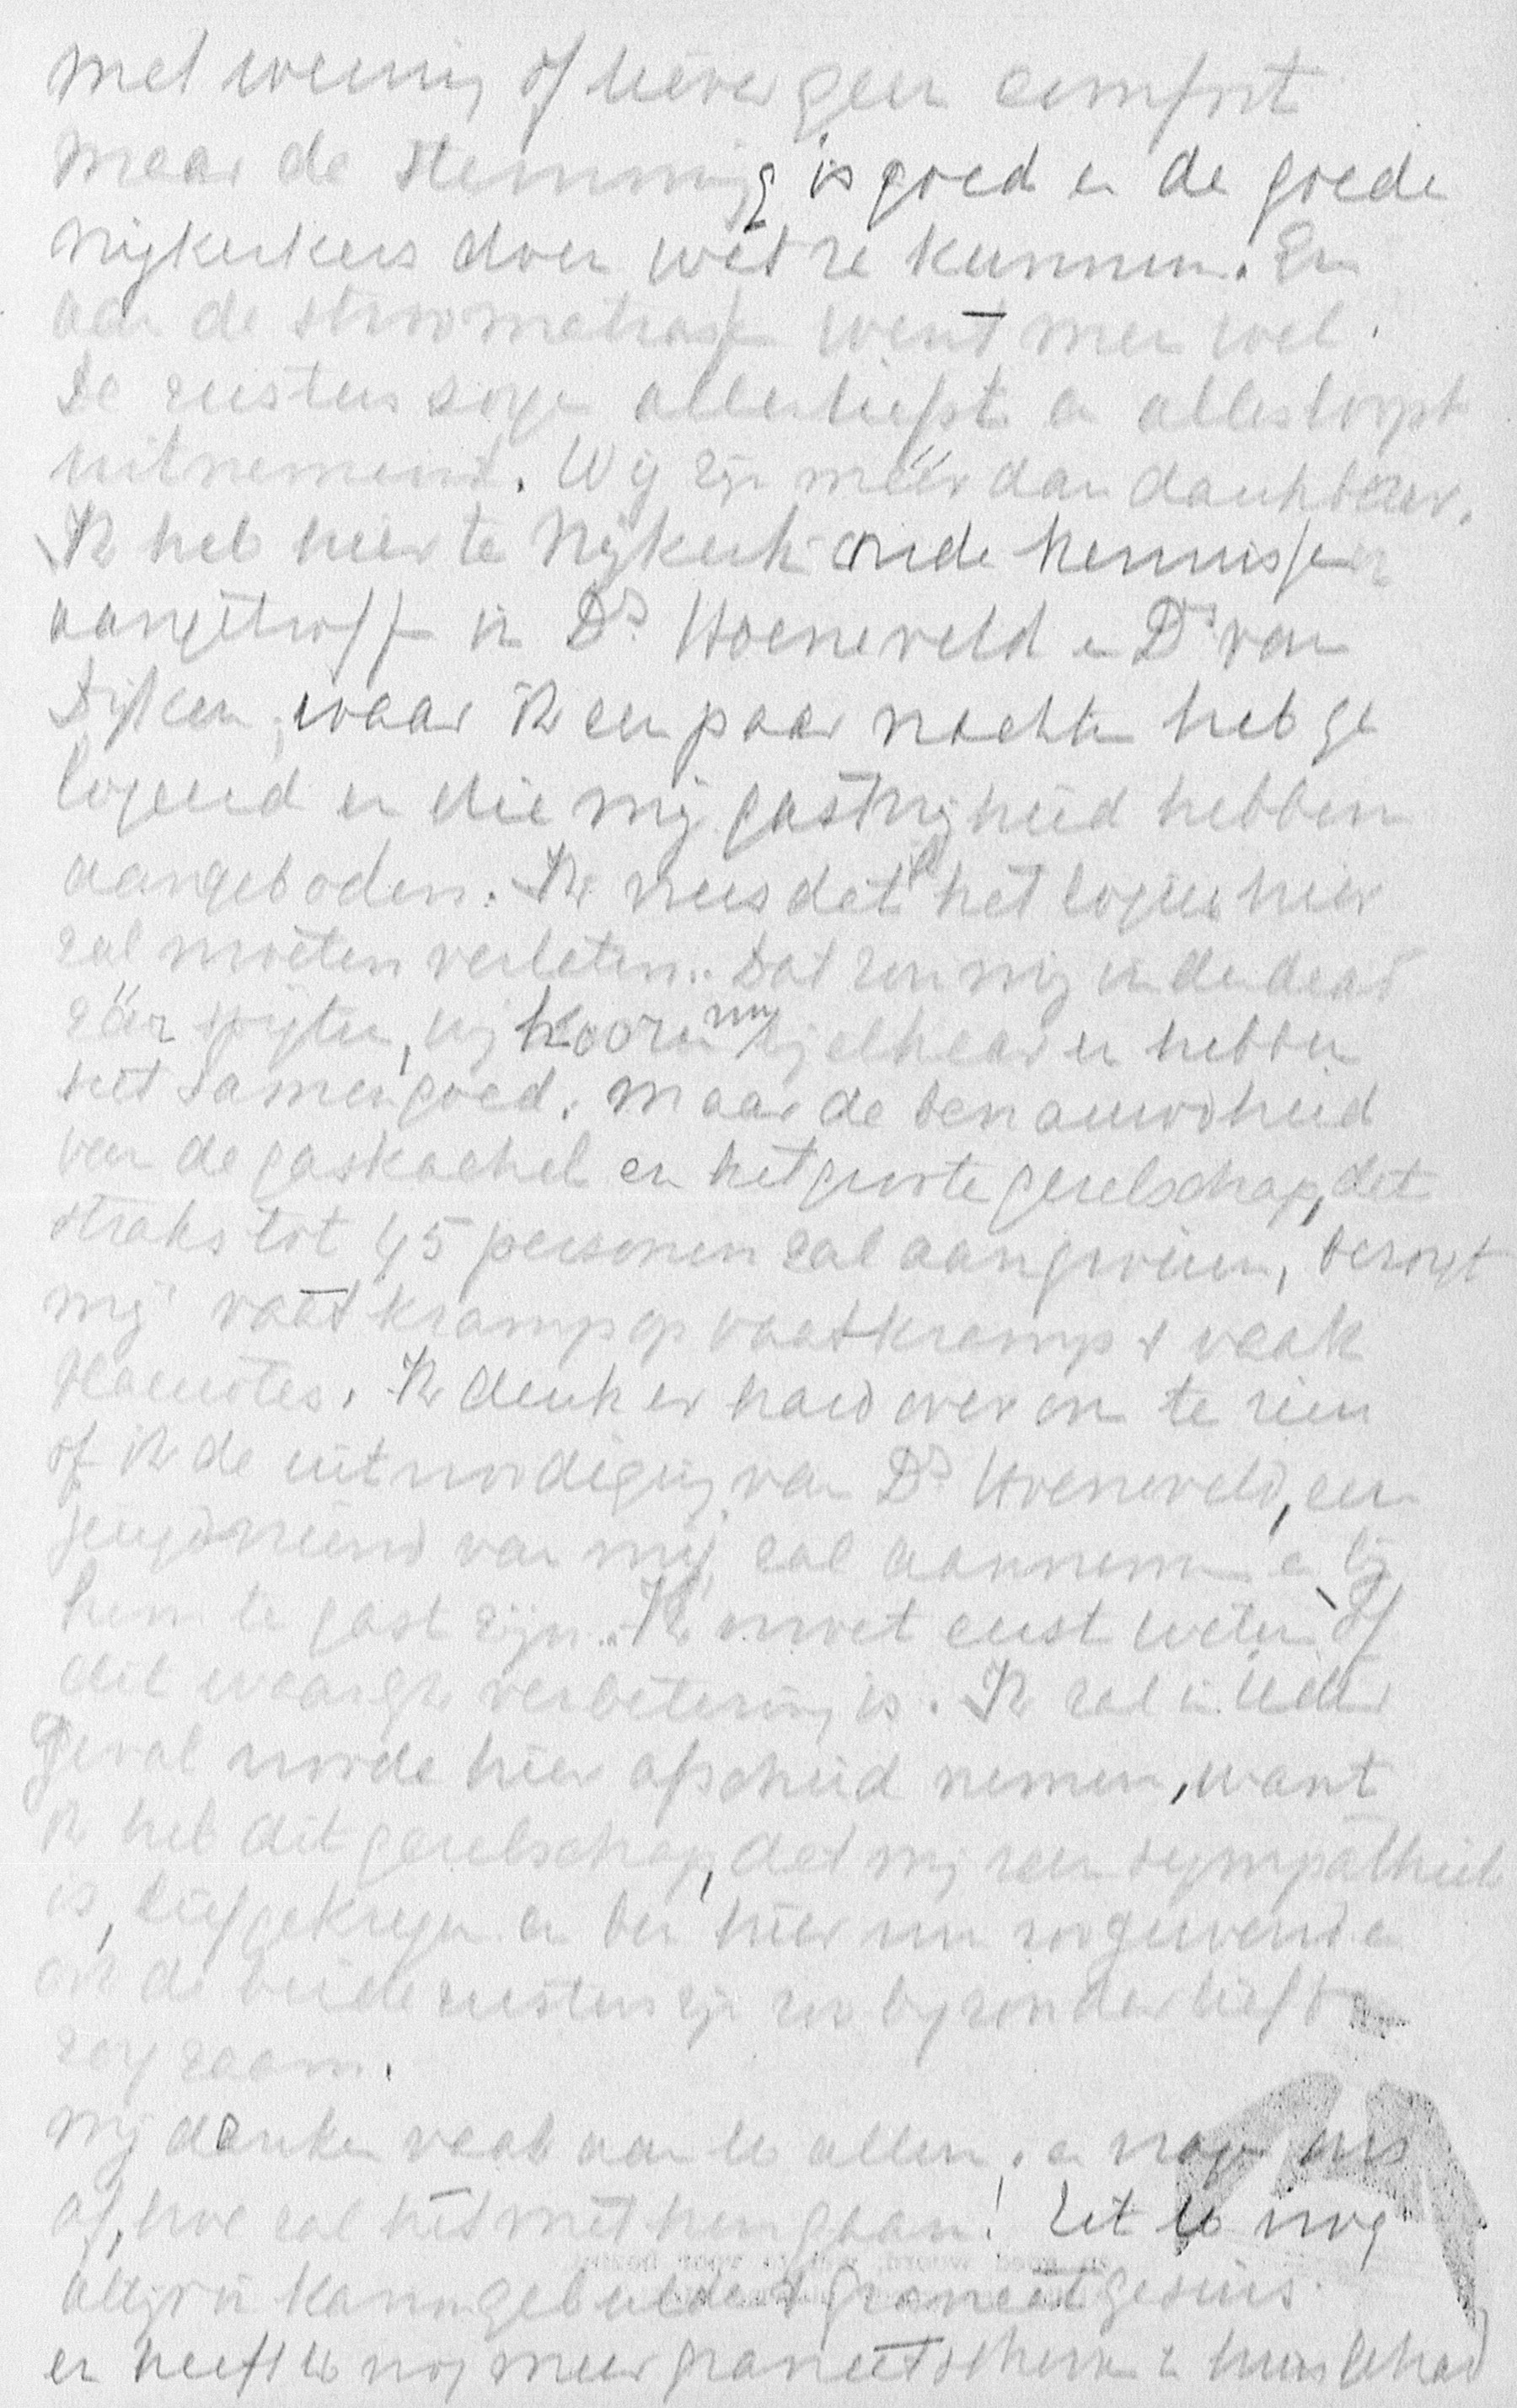 met weinig of liever geen comfort
maar de stemming is goed en de goede
Nijkerkers doen wat ze kunnen. En
aan de stroomatras went men wel.
De zusters zorgen allerliefst en alles loopt
uitnemend. Wij zijn méér dan dankbaar.
Ik heb hier te Nijkerk oude kennissen
aangetroffen in Ds Hoeneveld en Ds van
Dijken, waar ik een paar nachten heb ge
logeerd en die mij gastvrijheid hebben
aangeboden. Ik vrees dat ik het logies hier
zal moeten verlaten. Dat zou mij inderdaad
zéér spijten, wij hooren bij elkaar en hebben
het samen goed. Maar de benauwdheid
van de gaskachel en het groote gezelschap, dat
straks tot 45 personen zal aangroeien, bezorgt
mij vaatkramp op vaatkramp & vaak
slaeloos. Ik denk er hard over om te zien
of ik de uitnoodiging van Ds Hoeneveld, een
jeugdvriend van mij, zal aannemen en bij
hem te gast zijn. Ik moet eerst weten of
dit waarlijk verbetering is. Ik zal in ieder
geval noode hier afscheid nemen, want
ik heb dit gezelschap, dat mij zeer sympathiek
is, lief gekregen en ben hier nu zoo gewend en
ook de beide zusters zijn zoo bijzonder lief &
zorgzaam.
Wij denken vaak aan U allen. en vragen ons
af, hoe zal het met hen gaan! Zit U nog
altijd in kanongebulder & granaatgesuis
en heeft U nog meer granaatscherven in huis gehad